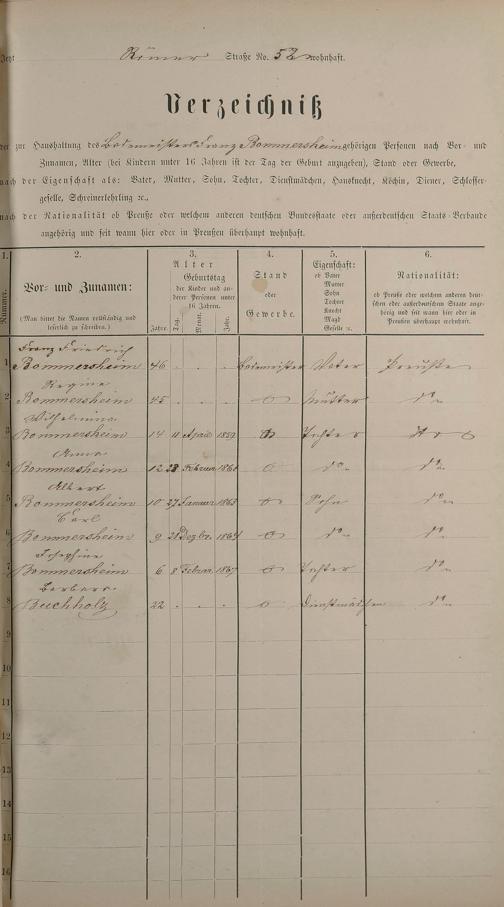 Jetzt Römer Straße No. 52 wohnhaft.
Verzeichniß
der zur Haushaltung des Bademeisters Franz Bommersheim gehörigen Personen nach Vor- und
Zunamen, Alter (bei Kindern unter 16 Jahren ist der Tag der Geburt anzugeben), Stand oder Gewerbe,
nach der Eigenschaft als: Vater, Mutter, Sohn, Tochter, Dienstmädchen, Hausknecht, Köchin, Diener, Schlosser-
geselle, Schreinerlehrling ꝛc.,
nach der Nationalität ob Preuße oder welchem anderen deutschen Bundesstaate oder außerdeutschen Staats-Verbande
angehörig und seit wann hier oder in Preußen überhaupt wohnhaft.
1. 2. 3. 4. 5. 6.
Nummer.
Vor- und Zunamen:
(Man bittet die Namen vollständig und
leserlich zu schreiben.)
Alter
Geburtstag
der Kinder und an-
derer Personen unter
16 Jahren.
Jahre. Tag. Monat. Jahr.
Stand
oder
Gewerbe.
Eigenschaft:
ob Vater
Mutter
Sohn
Tochter
Knecht
Magd
Geselle ꝛc.
Nationalität:
ob Preuße oder welchem anderen deut-
schen oder außerdeutschen Staate ange-
hörig und seit wann hier oder in
Preußen überhaupt wohnhaft.
Franz Friedrich
1 Bommersheim 46 . . . Bademeister Vater Preuße
Regine
2 Bommersheim 45 . . . o Mutter do
Wilhelmina
3 Bommersheim 14 11 April 1859 o Tochter do
Anna
4 Bommersheim 12 28 Februar 1861 o do do
Albert
5 Bommersheim 10 27 Januar 1863 o Sohn do
Carl
6 Bommersheim 9 21 Dezbr. 1864 o do do
Josephine
7 Bommersheim 6 8 Februar 1867 o Tochter do
Barbara
8 Buchholz 22 . . . o Dienstmädchen do
9
10
11
12
13
14
15
16